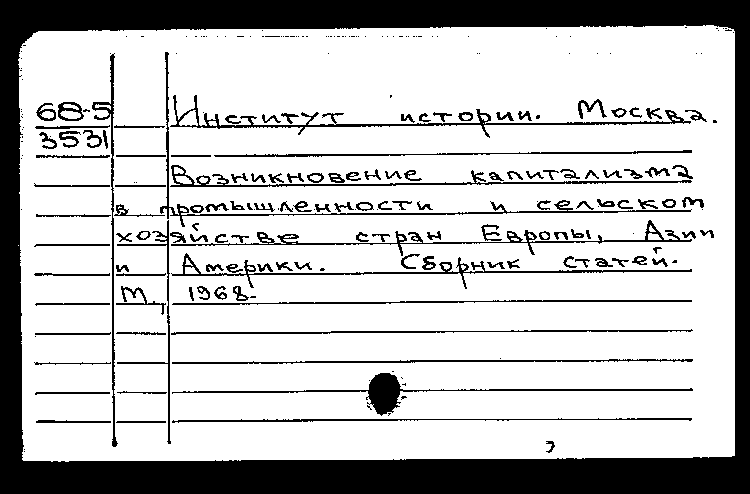 68-5 Институт истории. Москва.
3531
Возникновение капитализма
в промышленности и сельском
хозяйстве стран Европы, Азии
и Америки. Сборник статей.
М., 1968-